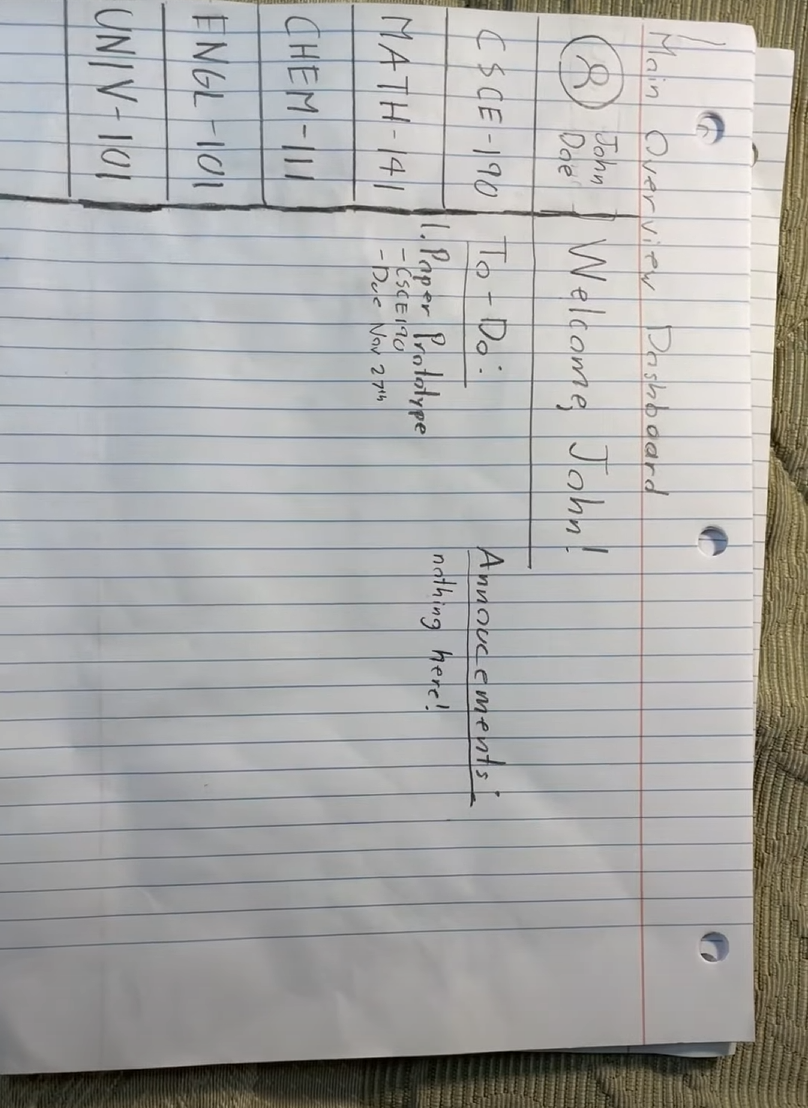 Main Overview Dashboard
John
Doe
Welcome, John!
CSCE-190
MATH-141
CHEM-111
ENGL-101
UNIV-101
To-Do:
1. Paper Prototype
- CSCE190
- Due Nov 27th
Annoucements:
nothing here!